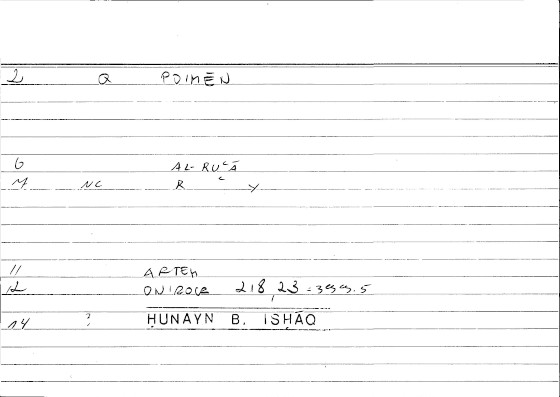 2 Q POIMĒN
6 AL-RUʿĀ
M NC R ʿ Y
11 ARTEM
12 ONIROCR 218,23 =
14 ? ḤUNAYN B. ISḤĀQ